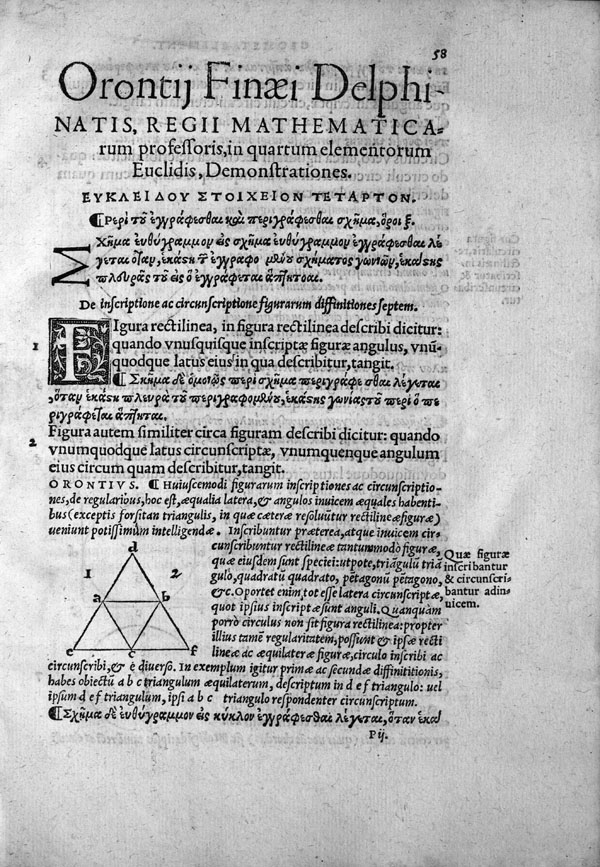 58
Orontij Finæi Delphi-
NATIS, REGII MATHEMATICA-
rum professoris, in quartum elementorum
Euclidis, Demonstrationes.
ΕΥΚΛΕΙΔΟΥ ΣΤΟΙΧΕΙΟΝ ΤΕΤΑΡΤΟΝ.
¶Περὶ τοῦ ἐγγράφεσθαι καὶ περιγράφεσθαι σχῆμα, ὅροι ζ.
Σχῆμα εὐθύγραμμον εἰς σχῆμα εὐθύγραμμον ἐγγράφεσθαι λέ
γεται ὅταν, ἑκάστη τῶν ἐγγραφο μένου σχήματος γωνιῶν, ἑκάστης
πλευρᾶς τοῦ εἰς ὃ ἐγγράφεται ἅπτηται.
De inscriptione ac circunscriptione figurarum diffinitiones septem.
1 FIgura rectilinea, in figura rectilinea describi dicitur:
quando vnusquisque inscriptæ figuræ angulus, vnũ-
quodque latus eius in qua describitur, tangit.
¶ Σχῆμα δὲ ὁμοίως περὶ σχῆμα περιγράφε σθαι λέγεται,
ὅταν ἑκάστη πλευρὰ τοῦ περιγραφομένου, ἑκάστης γωνίας τοῦ περὶ ὃ πε
ριγράφεται ἅπτηται.
2 Figura autem similiter circa figuram describi dicitur: quando
vnumquodque latus circunscriptæ, vnumquenque angulum
eius circum quam describitur, tangit.
ORONTIVS. ¶ Huiuscemodi figurarum inscriptiones ac circunscriptio-
nes, de regularibus, hoc est, æqualia latera, & angulos inuicem æquales habenti-
bus (exceptis forsitan triangulis, in quæ cæteræ resoluũtur rectilineæ figuræ)
ueniunt potissimum intelligendæ. Inscribuntur præterea, atque inuicem cir-
cunscribuntur rectilineæ tantummodo figuræ,
quæ eiusdem sunt speciei: utpote, triãgulũ triã
gulo, quadratũ quadrato, pẽtagonũ pẽtagono,
&c. Oportet enim, tot esse latera circunscriptæ,
quot ipsius inscriptæ sunt anguli. Quanquam
porrò circulus non sit figura rectilinea: propter
illius tamẽ regularitatem, possunt & ipsæ recti
lineæ ac æquilateræ figuræ, circulo inscribi ac
circunscribi, & è diuerso. In exemplum igitur primæ ac secundæ diffinitionis,
habes obiectũ a b c triangulum æquilaterum, descriptum in d e f triangulo: uel
ipsum d e f triangulum, ipsi a b c triangulo respondenter circunscriptum.
Quæ figuræ
inscribantur
& circunscri-
bantur adin-
uicem.
d
1 2
a b
e c f
¶Σχῆμα δὲ εὐθύγραμμον εἰς κύκλον ἐγγράφεσθαι λέγεται, ὅταν ἑκά
Pij.